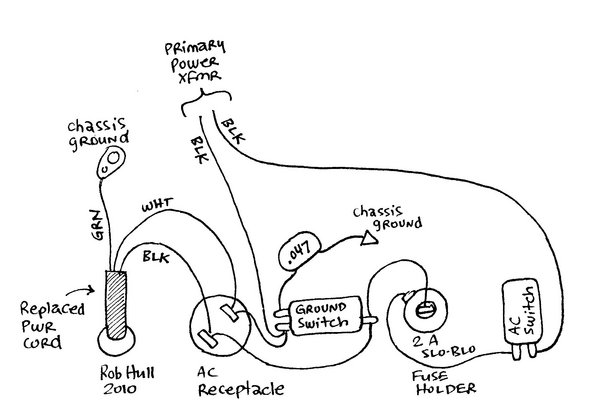 PRIMARY
POWER
XFMR
chassis
GROUND
BLK
BLK
WHT
GRN
BLK
chassis
GROUND
.047
Replaced
PWR
CORD
GROUND
Switch
AC
Switch
2 A
SLO-BLO
Rob Hull
2010
AC
Receptacle
FUSE
HOLDER